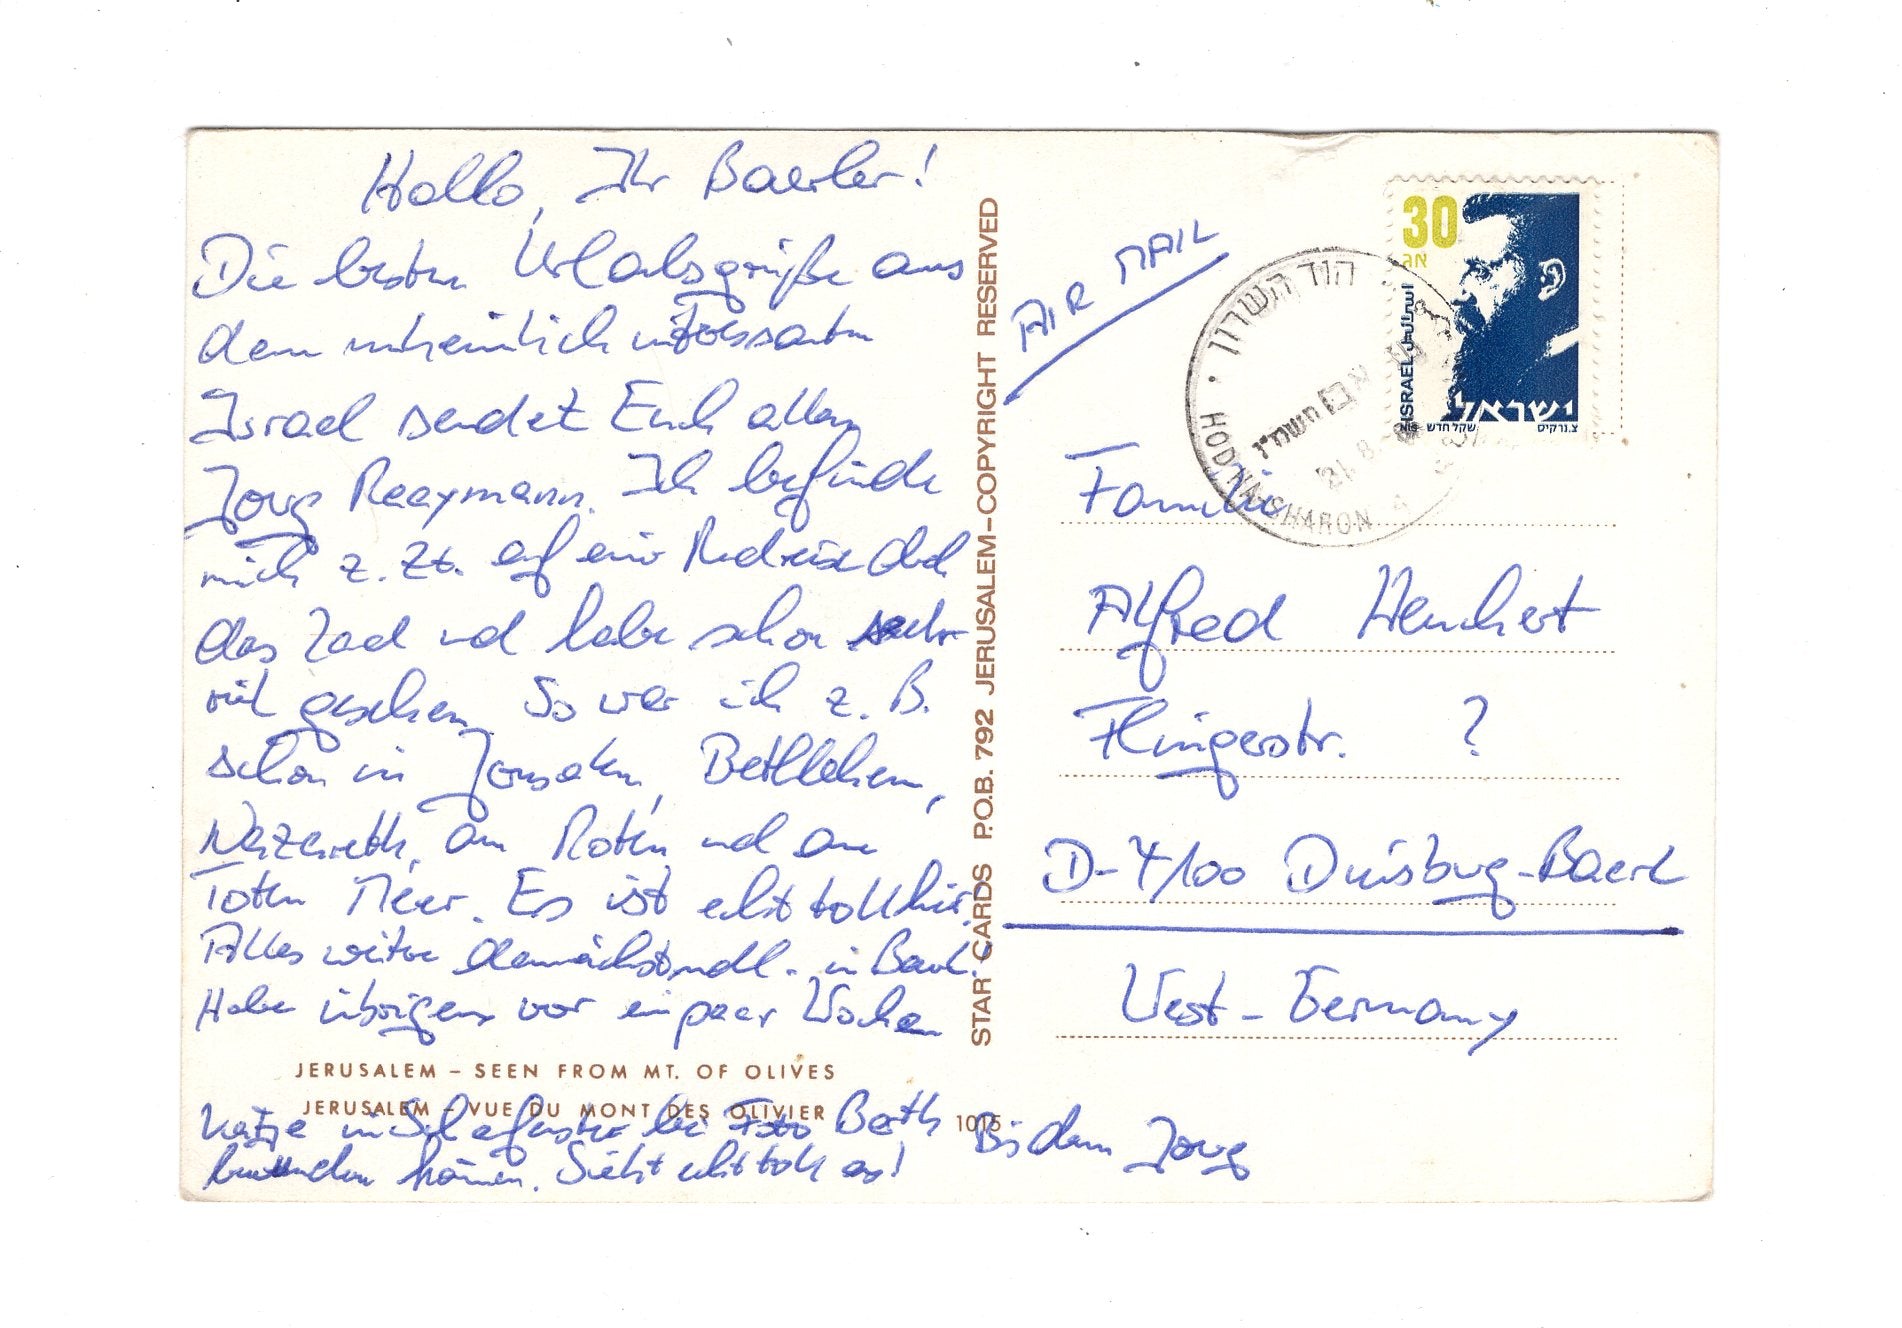 Hallo, Ihr Baerler!
Die besten Urlaubsgrüße aus
dem unheimlich interessanten
Israel sendet Euch allen
Jörg Raaymann. Ich befinde
mich z. Zt. auf einer Rundreise durch
das Land und habe schon sehr
viel gesehen. So war ich z. B.
schon in Jerusalem, Bethlehem,
Nazareth, am Roten und am
Toten Meer. Es ist echt toll hier.
Alles weitere demnächst mdl. in Baerl.
Habe übrigens vor ein paar Wochen
JERUSALEM – SEEN FROM MT. OF OLIVES
JERUSALEM – VUE DU MONT DES OLIVIER
1015
Katje im Schaufenster bei Foto Barth
bewundern können. Sieht echt toll aus!
Bis dann Jörg
STAR CARDS P.O.B. 792 JERUSALEM–COPYRIGHT RESERVED
AIR MAIL
הוד השרון
HOD HA-SHARON
30
אג
ISRAEL
ישראל
שקל חדש
צ. נרקיס
Familie
Alfred
Flingerstr. ?
D-4100 Duisburg-Baerl
West-Germany